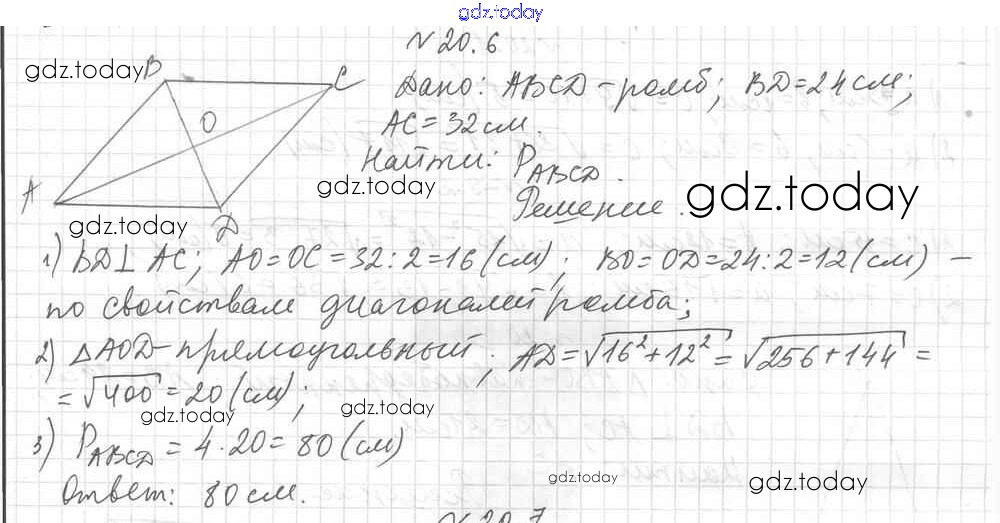 gdz.today
N 20.6
gdz.today B C Дано: ABCD - ромб; BD = 24 см;
O AC = 32 см.
Найти: P_ABCD.
A gdz.today gdz.today
gdz.today D Решение.
1) BD ⊥ AC; AO = OC = 32 : 2 = 16 (см); BO = OD = 24 : 2 = 12 (см) —
по свойствам диагоналей ромба;
2) △AOD - прямоугольный; AD = √16² + 12² = √256 + 144 =
= √400 = 20 (см);
gdz.today gdz.today
3) P_ABCD = 4 · 20 = 80 (см)
Ответ: 80 см.
gdz.today gdz.today
N 20.7